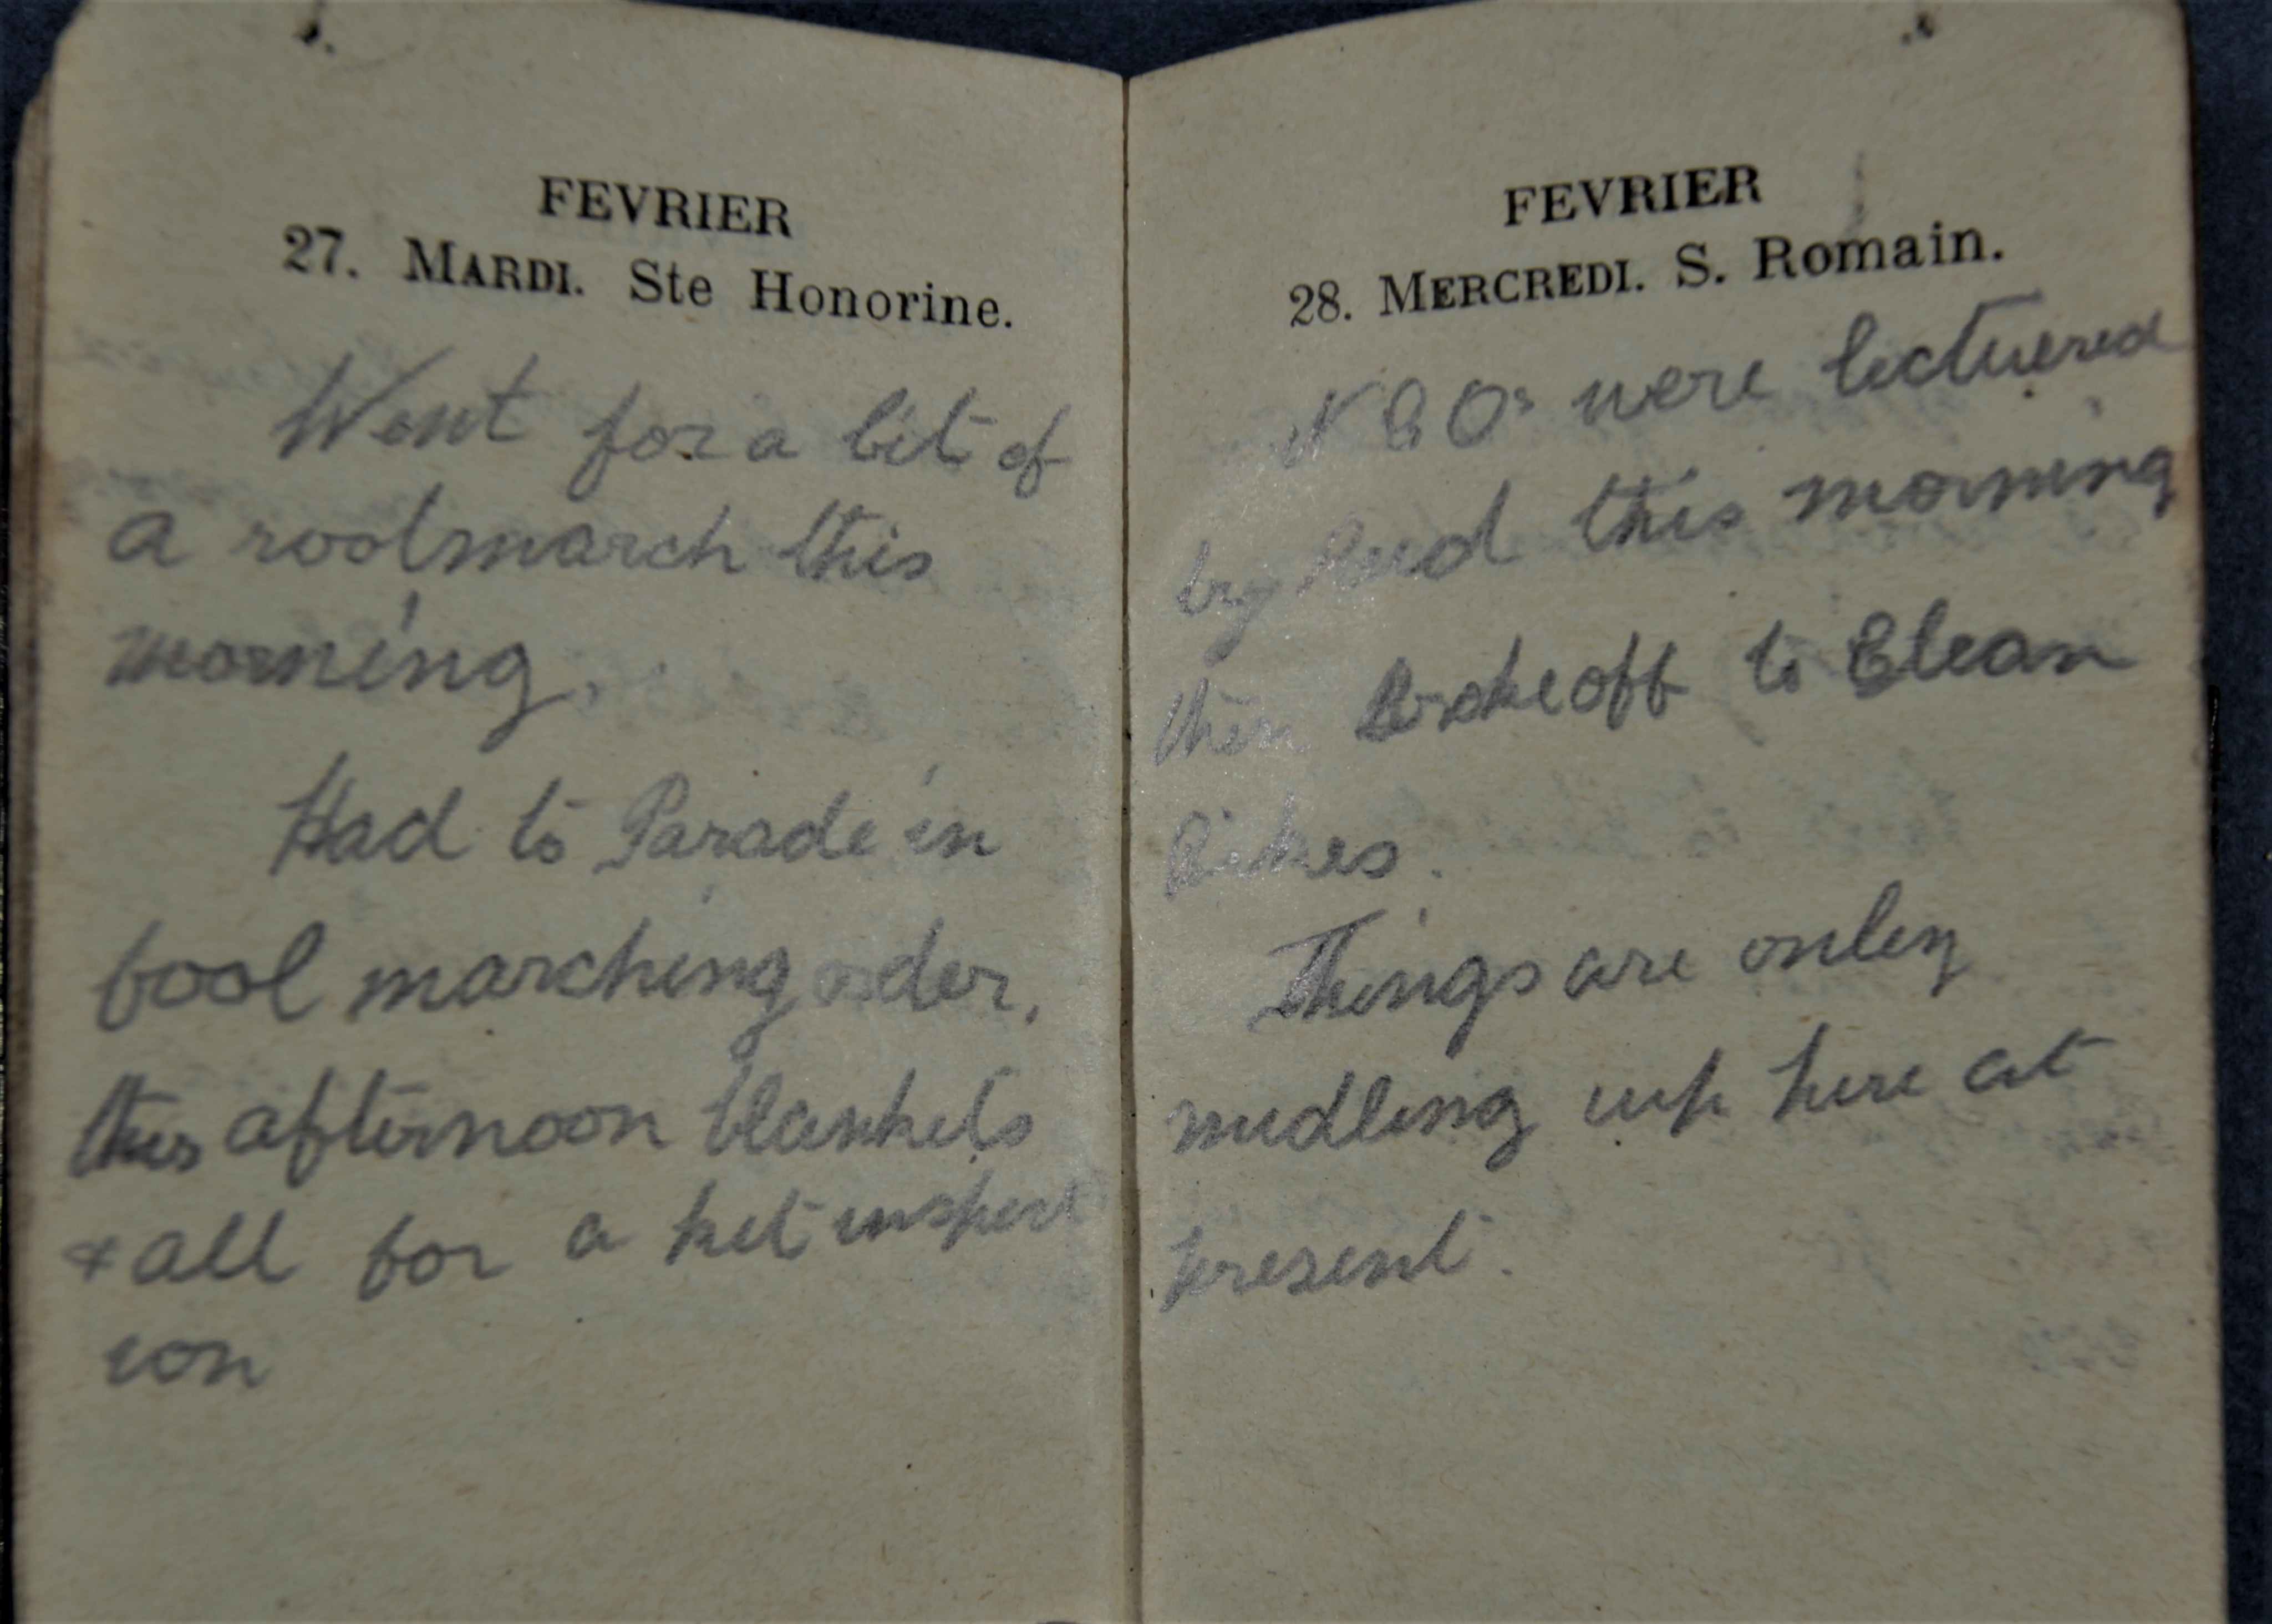 FEVRIER
27. MARDI. Ste Honorine.
Went for a bit of
a rootmarch this
morning.
Had to Parade in
fool marching order.
this afternoon blankets
+ all for a kit inspect
ion
FEVRIER
28. MERCREDI. S. Romain.
N C Os were lectuered
by this morning
then Broke off to Clean
Bikes.
Things are onley
midling up here at
present.